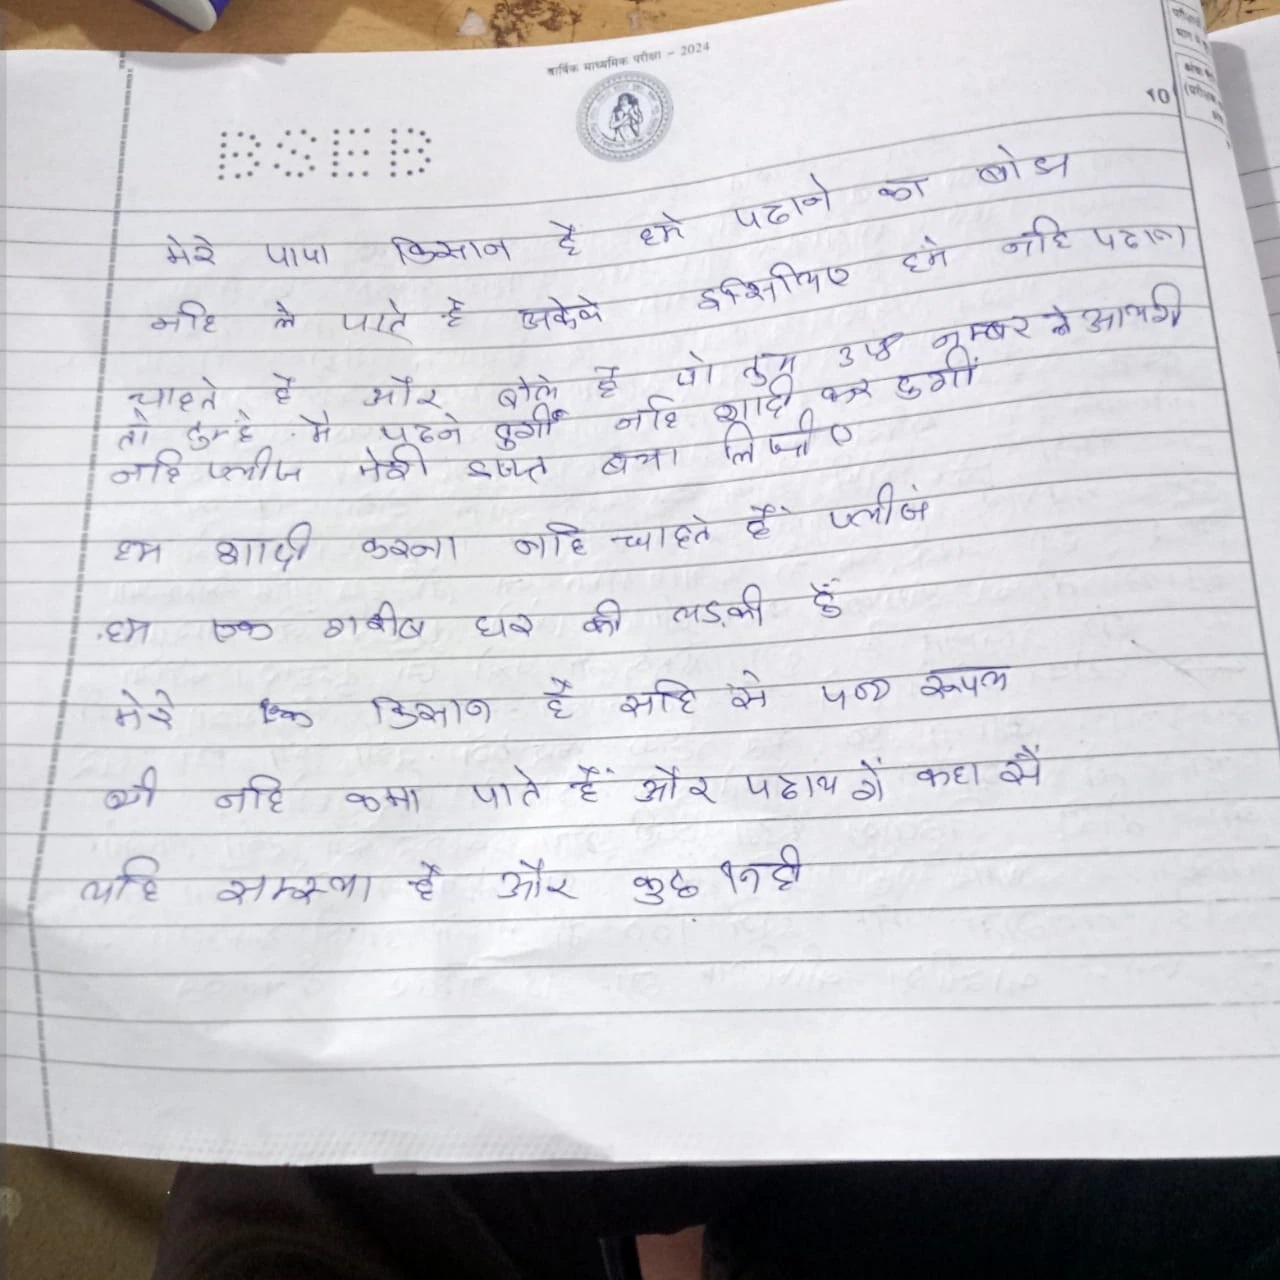 वार्षिक माध्यमिक परीक्षा - 2024
BSEB
10
मेरे पापा किसान है हमे पढाने का बोझ
नहि ले पाते है सकेथे इसिलिए हमे नहि पढाना
चाहते है और बोले है जो तुम 318 नम्बर ले आयगी
तो तुम्हे मै पढने दुगीं नहि शादी कर दुगीं
नहि प्लीज मेरी इज्त बचा लिजीए
हम शादी करना नहि चाहते हैं प्लीजं
हम एक गरीब घर की लड़की हुँ
मेरे एक किसान है सहि से पन्द्र रूपल
भी नहि कमा पाते हैं और पढायगें कहा सें
यहि समस्या है और कुछ नही